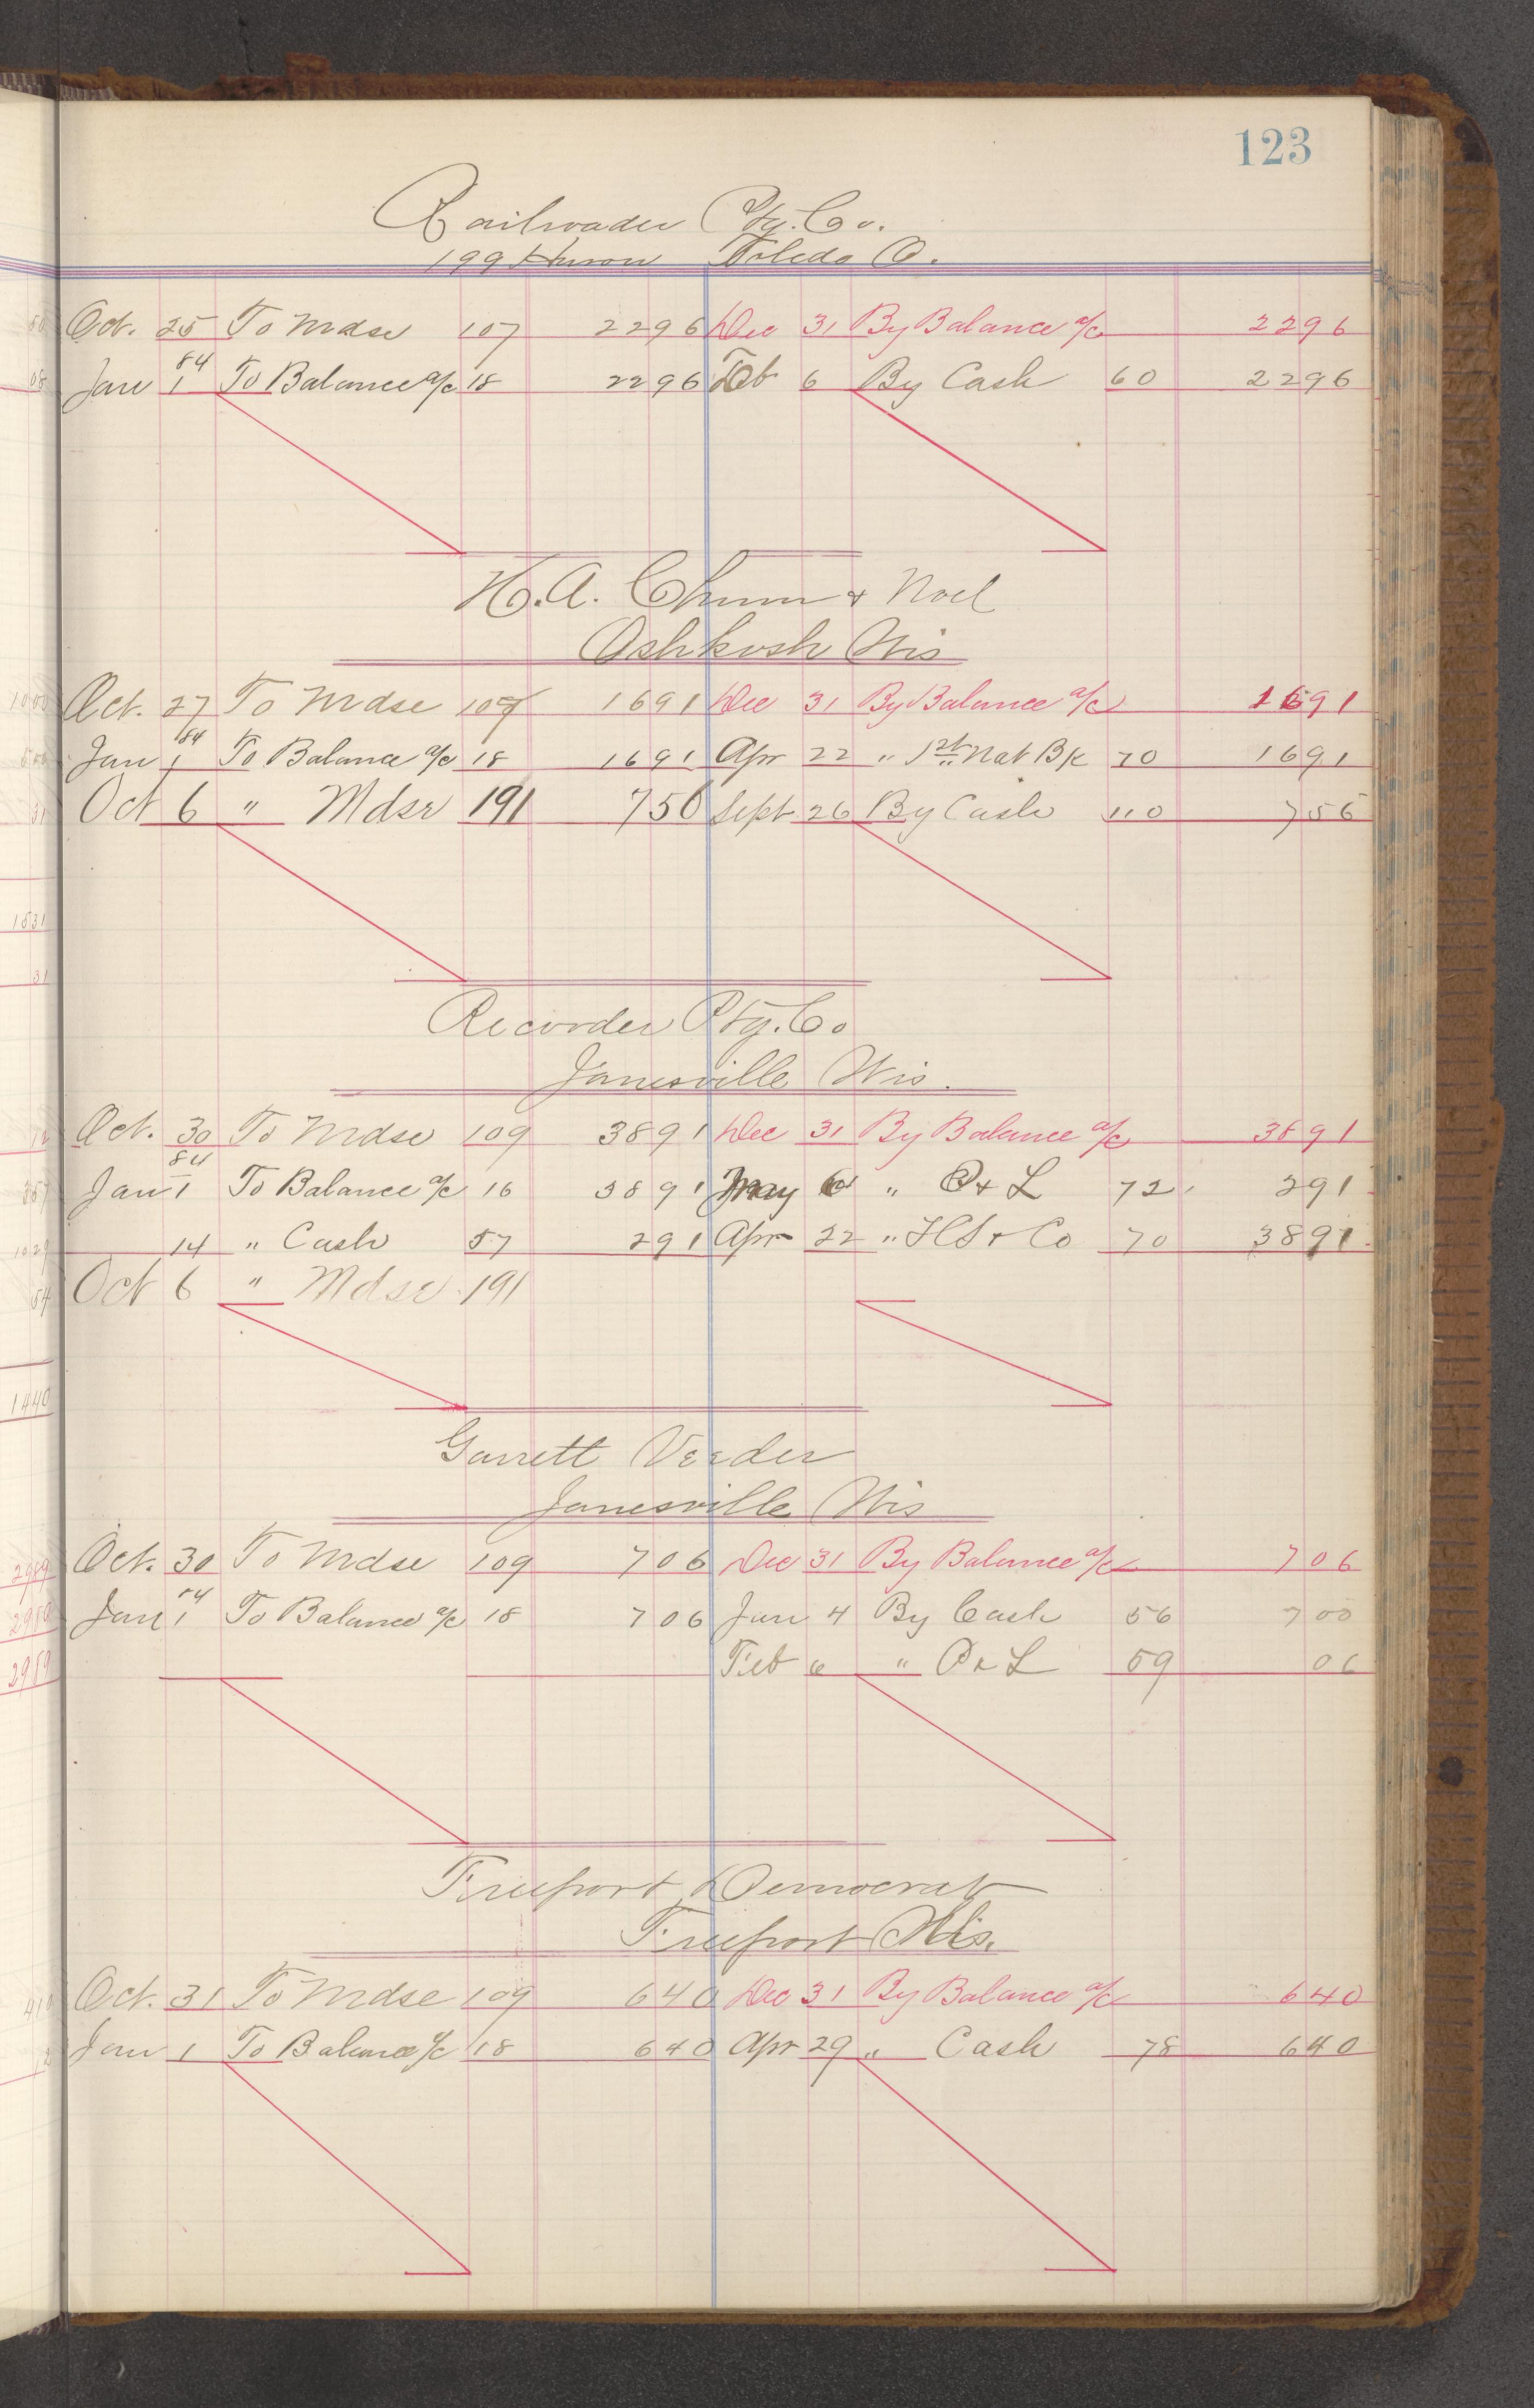 123
Railroader Ptg. Co.
199 Huron Toledo O.
Oct. 25 To Mdse 107 2296 Dec 31 By Balance a/c 2296
84
Jan 1 To Balance a/c 18 2296 Feb 6 By Cash 60 2296
H. A. & Noel
Oshkosh Wis
Oct. 27 To Mdse 107 1691 Dec 31 By Balance a/c 1691
84
Jan 1 To Balance a/c 18 1691 Apr 22 " 1st Nat Bk 70 1691
Oct 6 " Mdse 191 756 Sept 26 By Cash 110 756
Recorder Ptg. Co
Janesville Wis.
Oct. 30 To Mdse 109 3891 Dec 31 By Balance a/c 3891
84
Jan 1 To Balance a/c 16 3891 May 6 " P & L 72 291
14 " Cash 57 291 Apr 22 " & Co 70 3891
Oct 6 " Mdse 191
Garrett Veeder
Janesville Wis
Oct. 30 To Mdse 109 706 Dec 31 By Balance a/c 706
84
Jan 1 To Balance a/c 18 706 Jan 4 By Cash 56 700
Feb 6 " P & L 59 06
Freeport Democrat
Freeport
Oct. 31 To Mdse 109 640 Dec 31 By Balance a/c 640
Jan 1 To Balance a/c 18 640 Apr 29 " Cash 78 640
1531
31
1440
2989
2989
2989